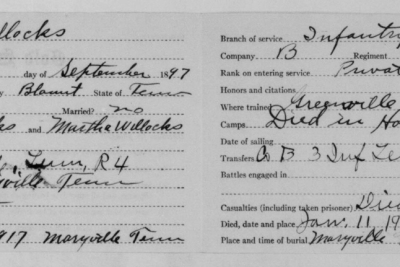 llocks
day of September 1897
Blount State of Tenn
Married? no
ks and Martha Willocks
Tenn, R4
ville Tenn
917 Maryville Tenn
Branch of service Infantry
Company B Regiment
Rank on entering service Privat
Honors and citations
Where trained Greenville
Camps Died in Ho
Date of sailing
Transfers Co B 3 Inf Te
Battles engaged in
Casualties (including taken prisoner) Died
Died, date and place Jan. 11, 19
Place and time of burial Maryville